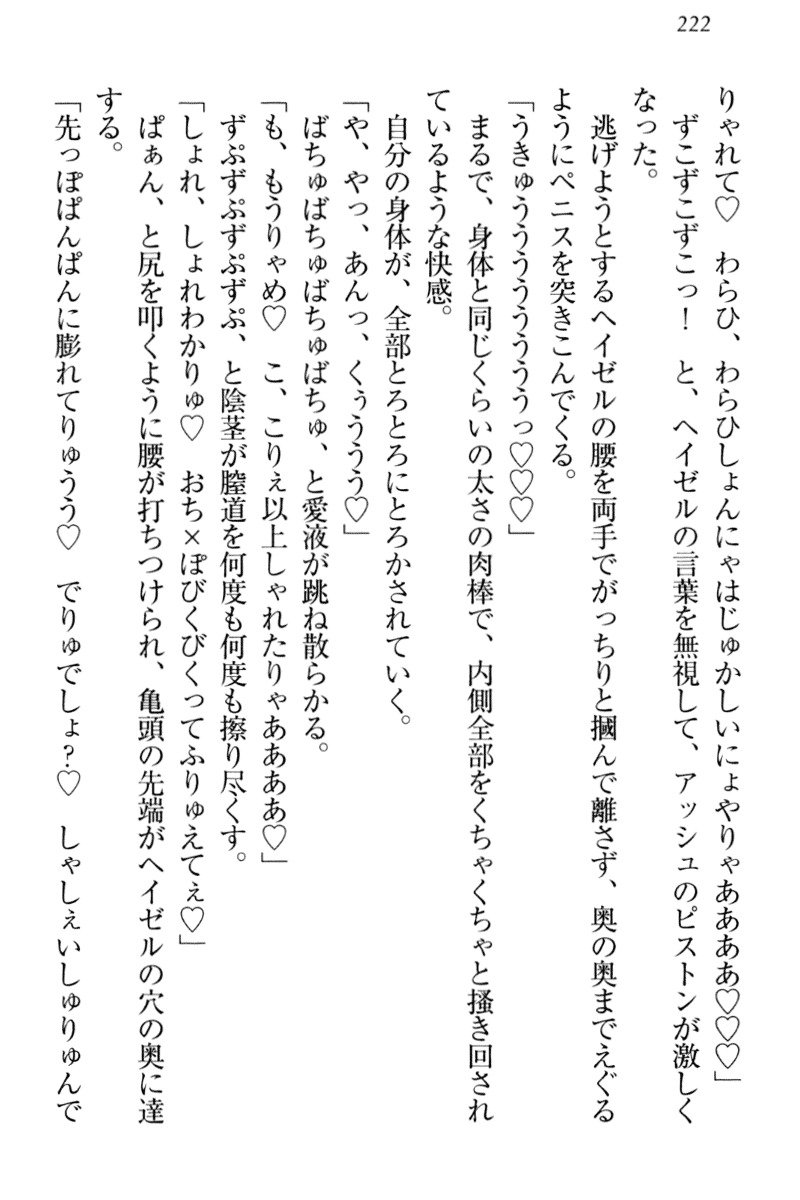 222
りゃれて♡　わらひ、わらひしょんにゃはじゅかしいにょやりゃああああ♡♡♡」
ずこずこずこっ！　と、ヘイゼルの言葉を無視して、アッシュのピストンが激しく
なった。
逃げようとするヘイゼルの腰を両手でがっちりと摑んで離さず、奥の奥までえぐる
ようにペニスを突きこんでくる。
「うきゅうううううううううっ♡♡♡」
まるで、身体と同じくらいの太さの肉棒で、内側全部をくちゃくちゃと搔き回され
ているような快感。
自分の身体が、全部とろとろにとろかされていく。
「や、やっ、あんっ、くぅううう♡」
ばちゅばちゅばちゅばちゅ、と愛液が跳ね散らかる。
「も、もうりゃめ♡　こ、こりぇ以上しゃれたりゃああああ♡」
ずぷずぷずぷずぷ、と陰茎が膣道を何度も何度も擦り尽くす。
「しょれ、しょれわかりゅ♡　おち×ぽびくびくってふりゅえてぇ♡」
ぱぁん、と尻を叩くように腰が打ちつけられ、亀頭の先端がヘイゼルの穴の奥に達
する。
「先っぽぱんぱんに膨れてりゅうう♡　でりゅでしょ？♡　しゃしぇいしゅりゅんで